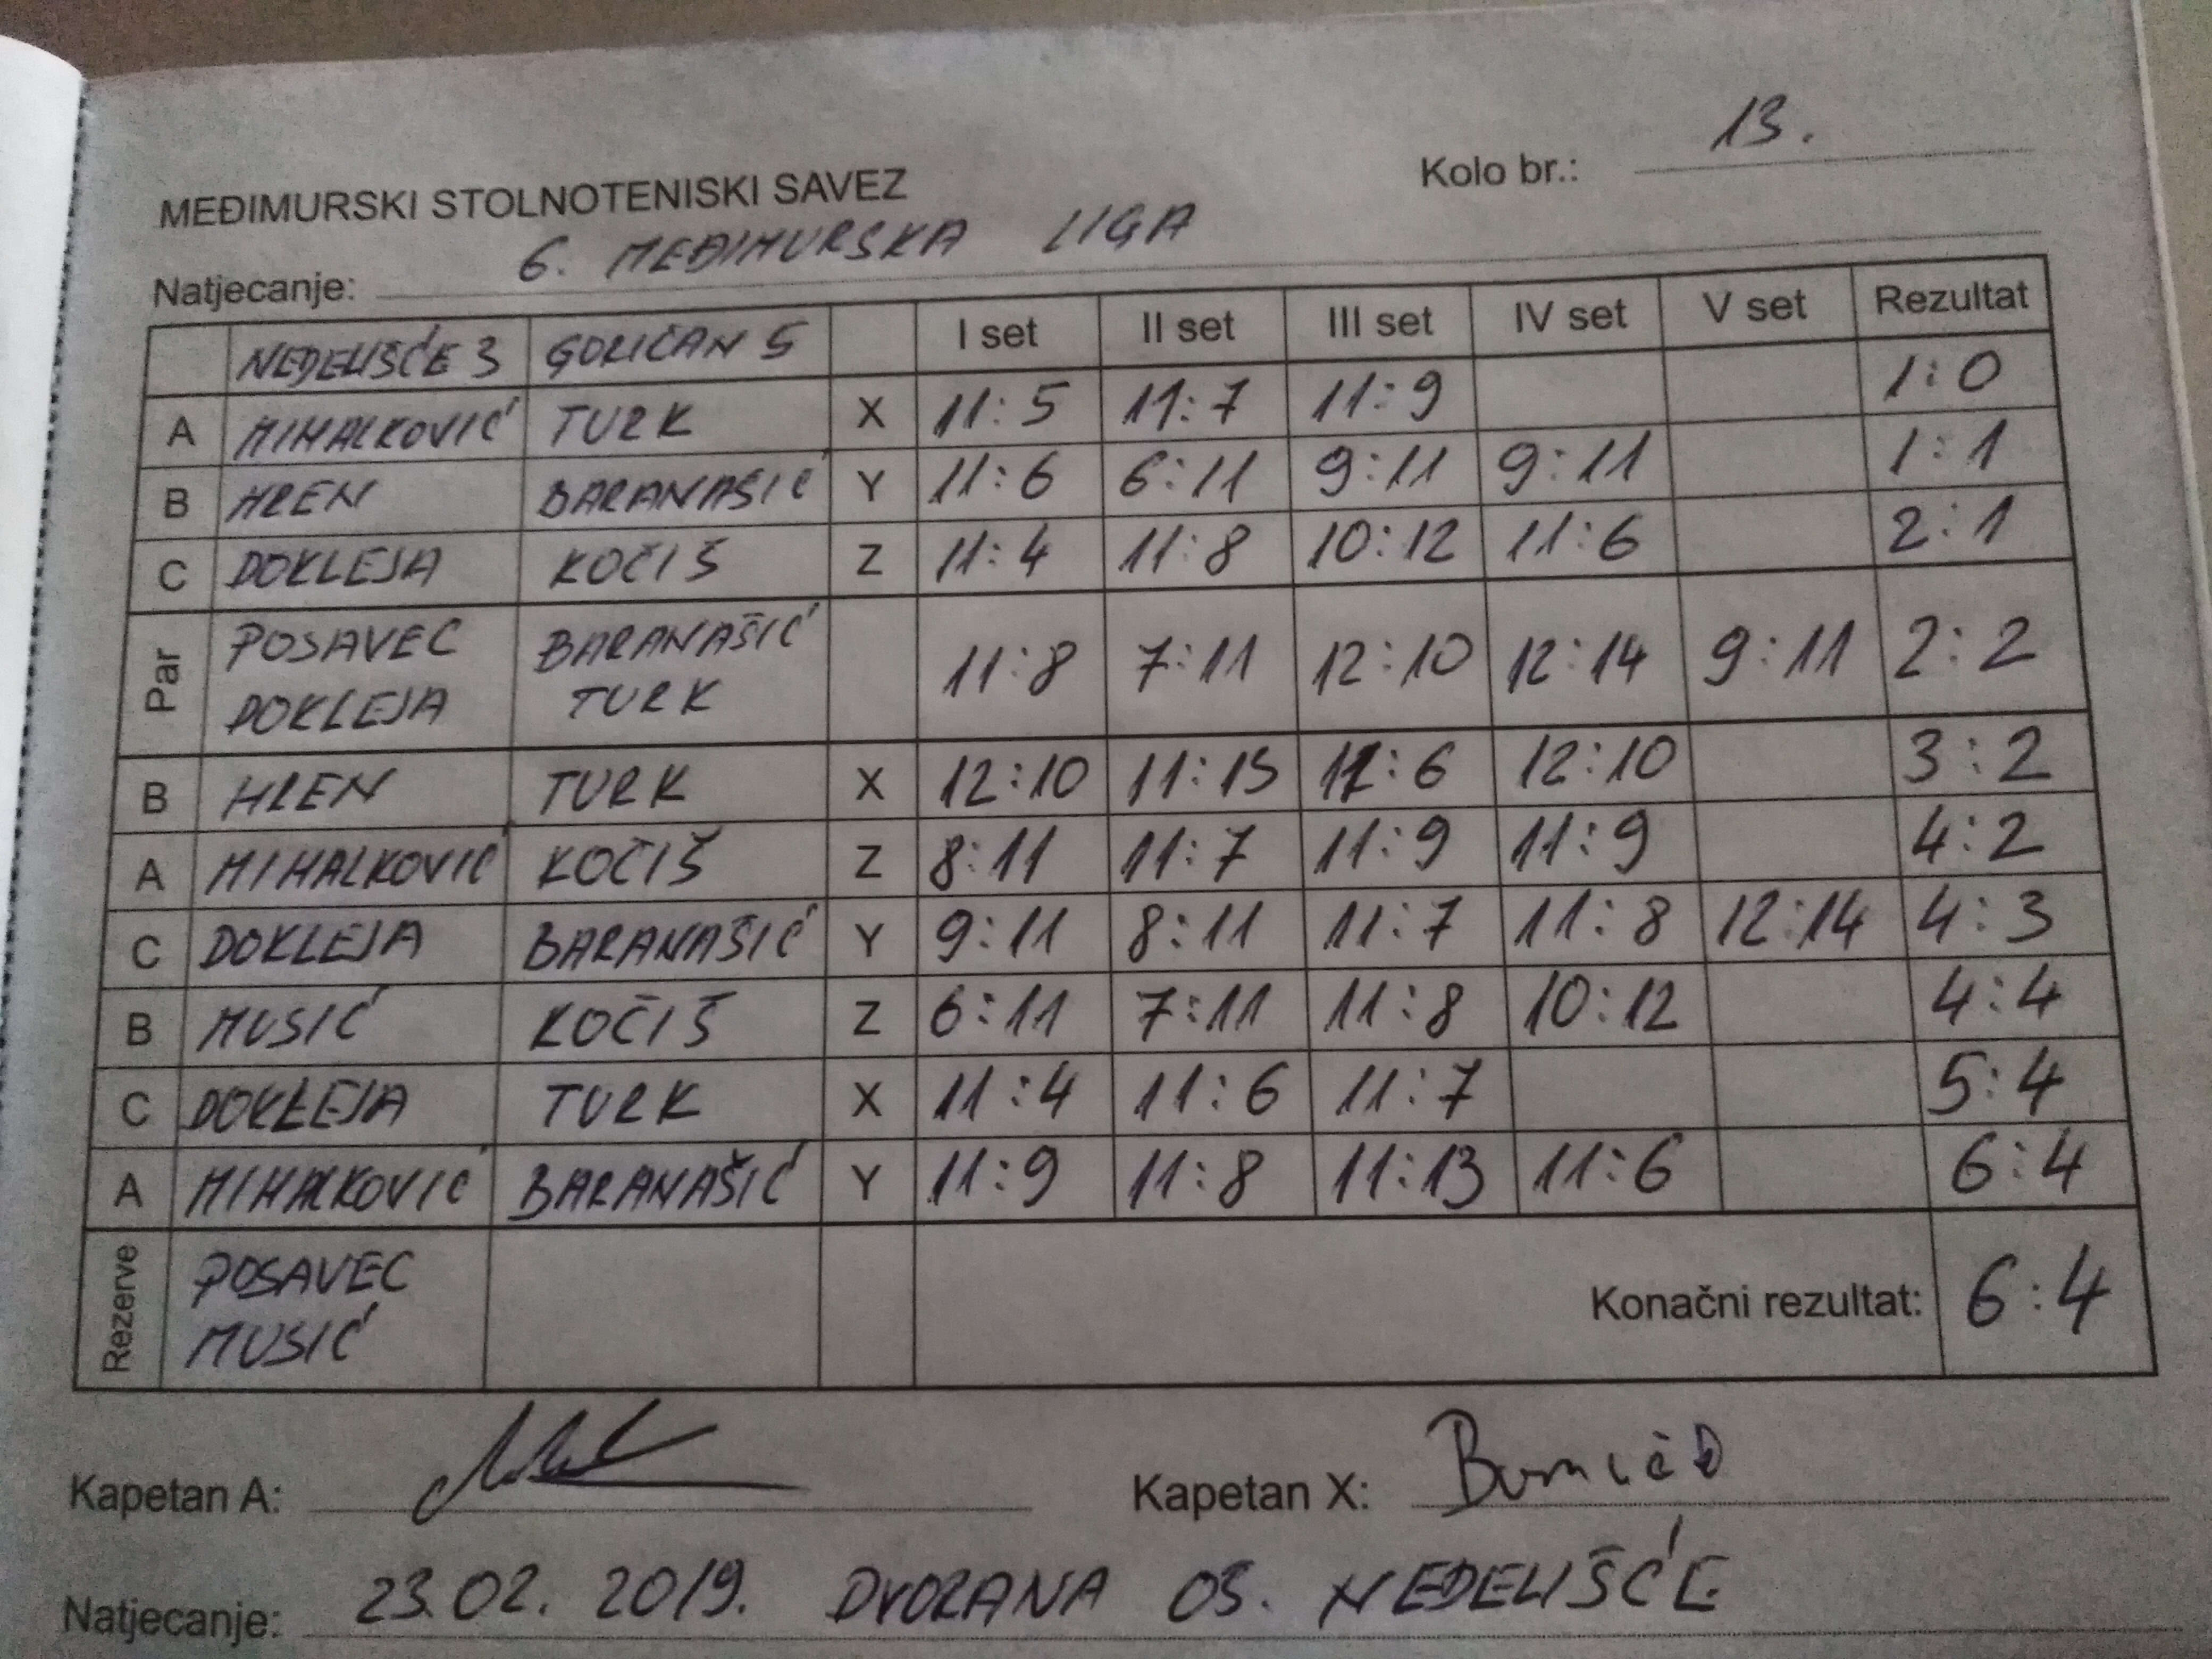 Kolo br.: 13.
MEĐIMURSKI STOLNOTENISKI SAVEZ
Natjecanje: 6. MEĐIMURSKA LIGA
NEDELIŠĆE 3 GORIČAN 5 I set II set III set IV set V set Rezultat
A MIHALKOVIĆ TURK X 11:5 11:7 11:9 1:0
B HREN BARANAŠIĆ Y 11:6 6:11 9:11 9:11 1:1
C DOKLEJA KOČIŠ Z 11:4 11:8 10:12 11:6 2:1
Par POSAVEC BARANAŠIĆ 11:8 7:11 12:10 12:14 9:11 2:2
DOKLEJA TURK
B HREN TURK X 12:10 11:13 11:6 12:10 3:2
A MIHALKOVIĆ KOČIŠ Z 8:11 11:7 11:9 11:9 4:2
C DOKLEJA BARANAŠIĆ Y 9:11 8:11 11:7 11:8 12:14 4:3
B MUSIĆ KOČIŠ Z 6:11 7:11 11:8 10:12 4:4
C DOKLEJA TURK X 11:4 11:6 11:7 5:4
A MIHALKOVIĆ BARANAŠIĆ Y 11:9 11:8 11:13 11:6 6:4
Rezerve POSAVEC Konačni rezultat: 6:4
MUSIĆ
Kapetan A: Kapetan X:
Natjecanje: 23.02.2019. DVORANA OŠ. NEDELIŠĆE